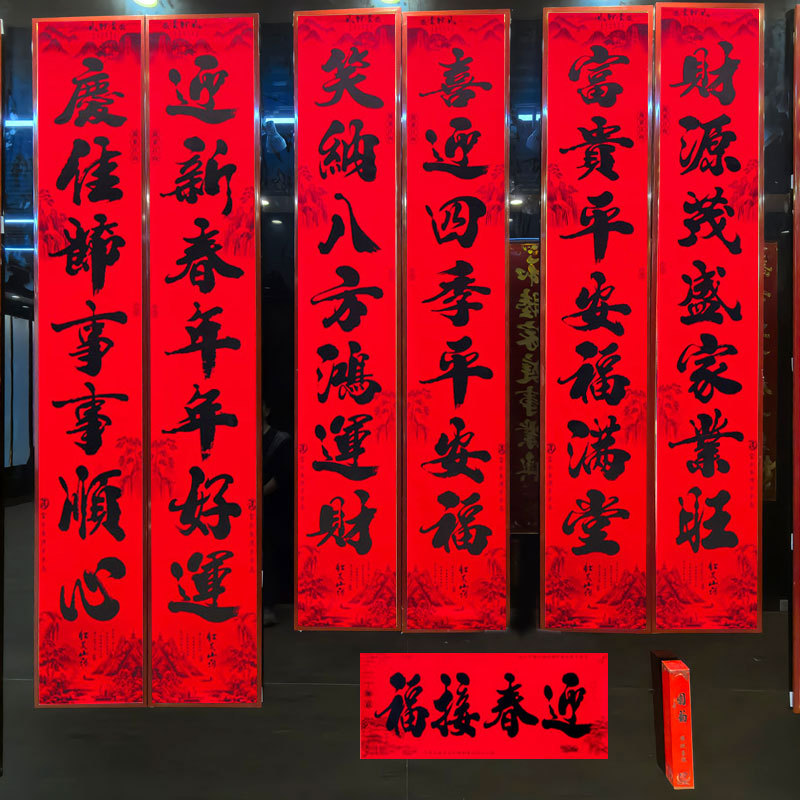 財源茂盛家業旺
富貴平安福满堂
喜迎四季平安福
笑納八方鴻運財
迎新春年年好運
慶佳節事事順心
迎春接福
和睦家庭事業興